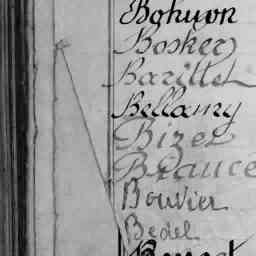 Bohuon
Bosker
Barillet
Bellamy
Bizet
Beauce
Bouvier
Bedel